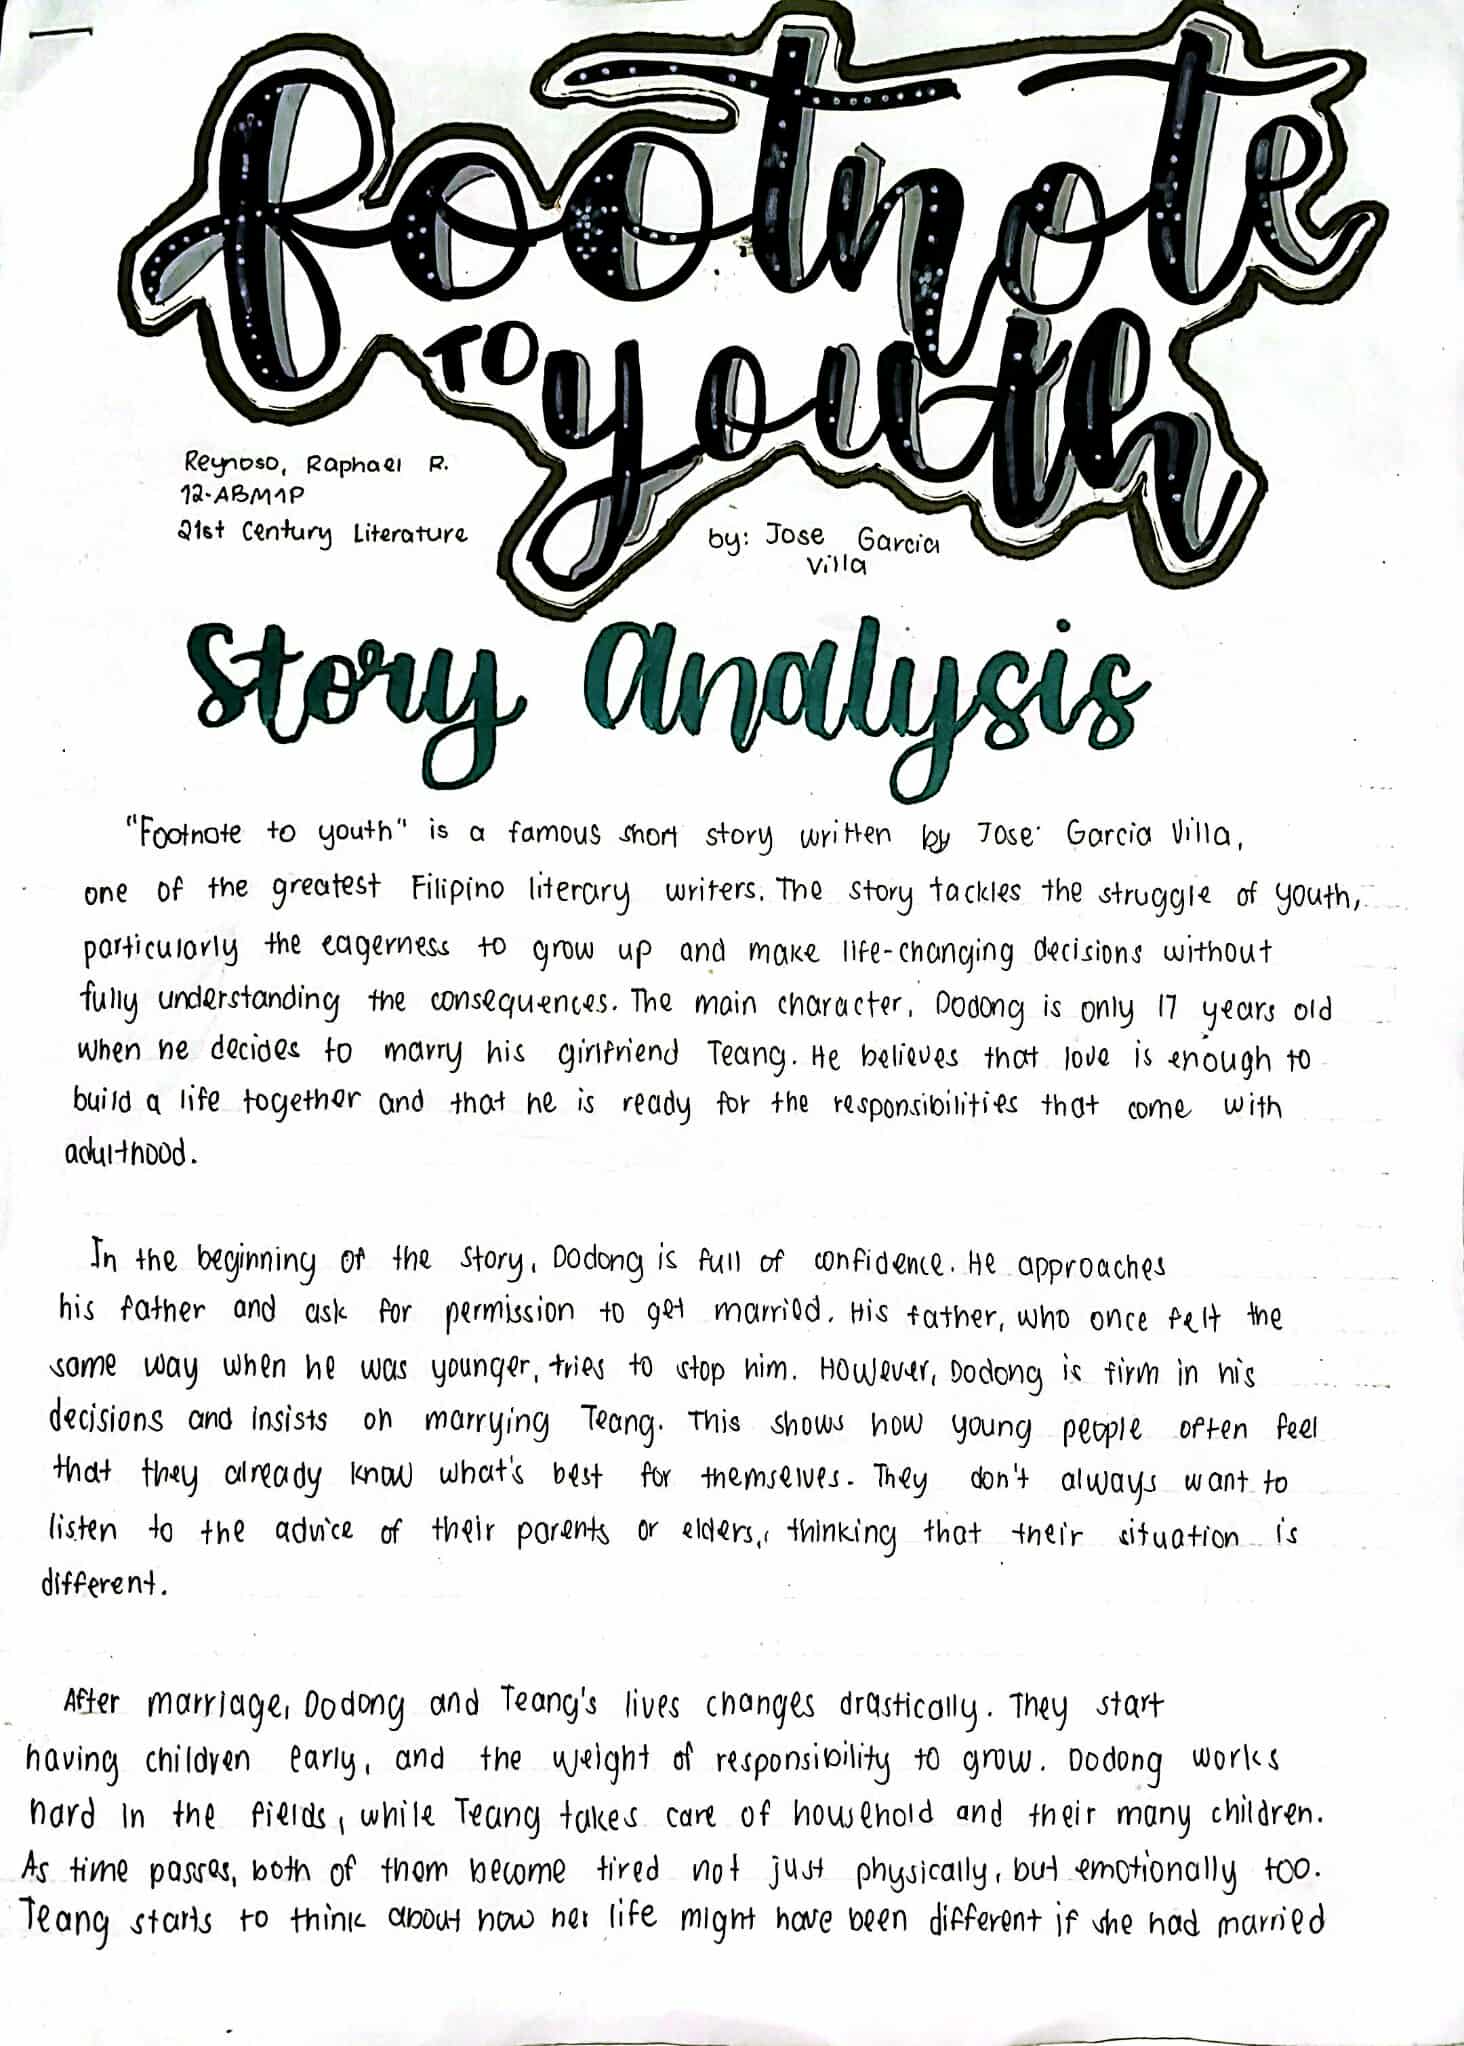 footnote
TO youth
Reynoso, Raphael R.
12-ABM1P
21st Century Literature
by: Jose Garcia
Villa
Story Analysis
"Footnote to youth" is a famous short story written by Jose Garcia Villa,
one of the greatest Filipino literary writers. The story tackles the struggle of youth,
particularly the eagerness to grow up and make life-changing decisions without
fully understanding the consequences. The main character, Dodong is only 17 years old
when he decides to marry his girlfriend Teang. He believes that love is enough to
build a life together and that he is ready for the responsibilities that come with
adulthood.
In the beginning of the story, Dodong is full of confidence. He approaches
his father and ask for permission to get married. His father, who once felt the
same way when he was younger, tries to stop him. However, Dodong is firm in his
decisions and insists on marrying Teang. This shows how young people often feel
that they already know what's best for themselves. They don't always want to
listen to the advice of their parents or elders, thinking that their situation is
different.
After marriage, Dodong and Teang's lives changes drastically. They start
having children early, and the weight of responsibility to grow. Dodong works
hard in the fields, while Teang takes care of household and their many children.
As time passes, both of them become tired not just physically, but emotionally too.
Teang starts to think about how her life might have been different if she had married